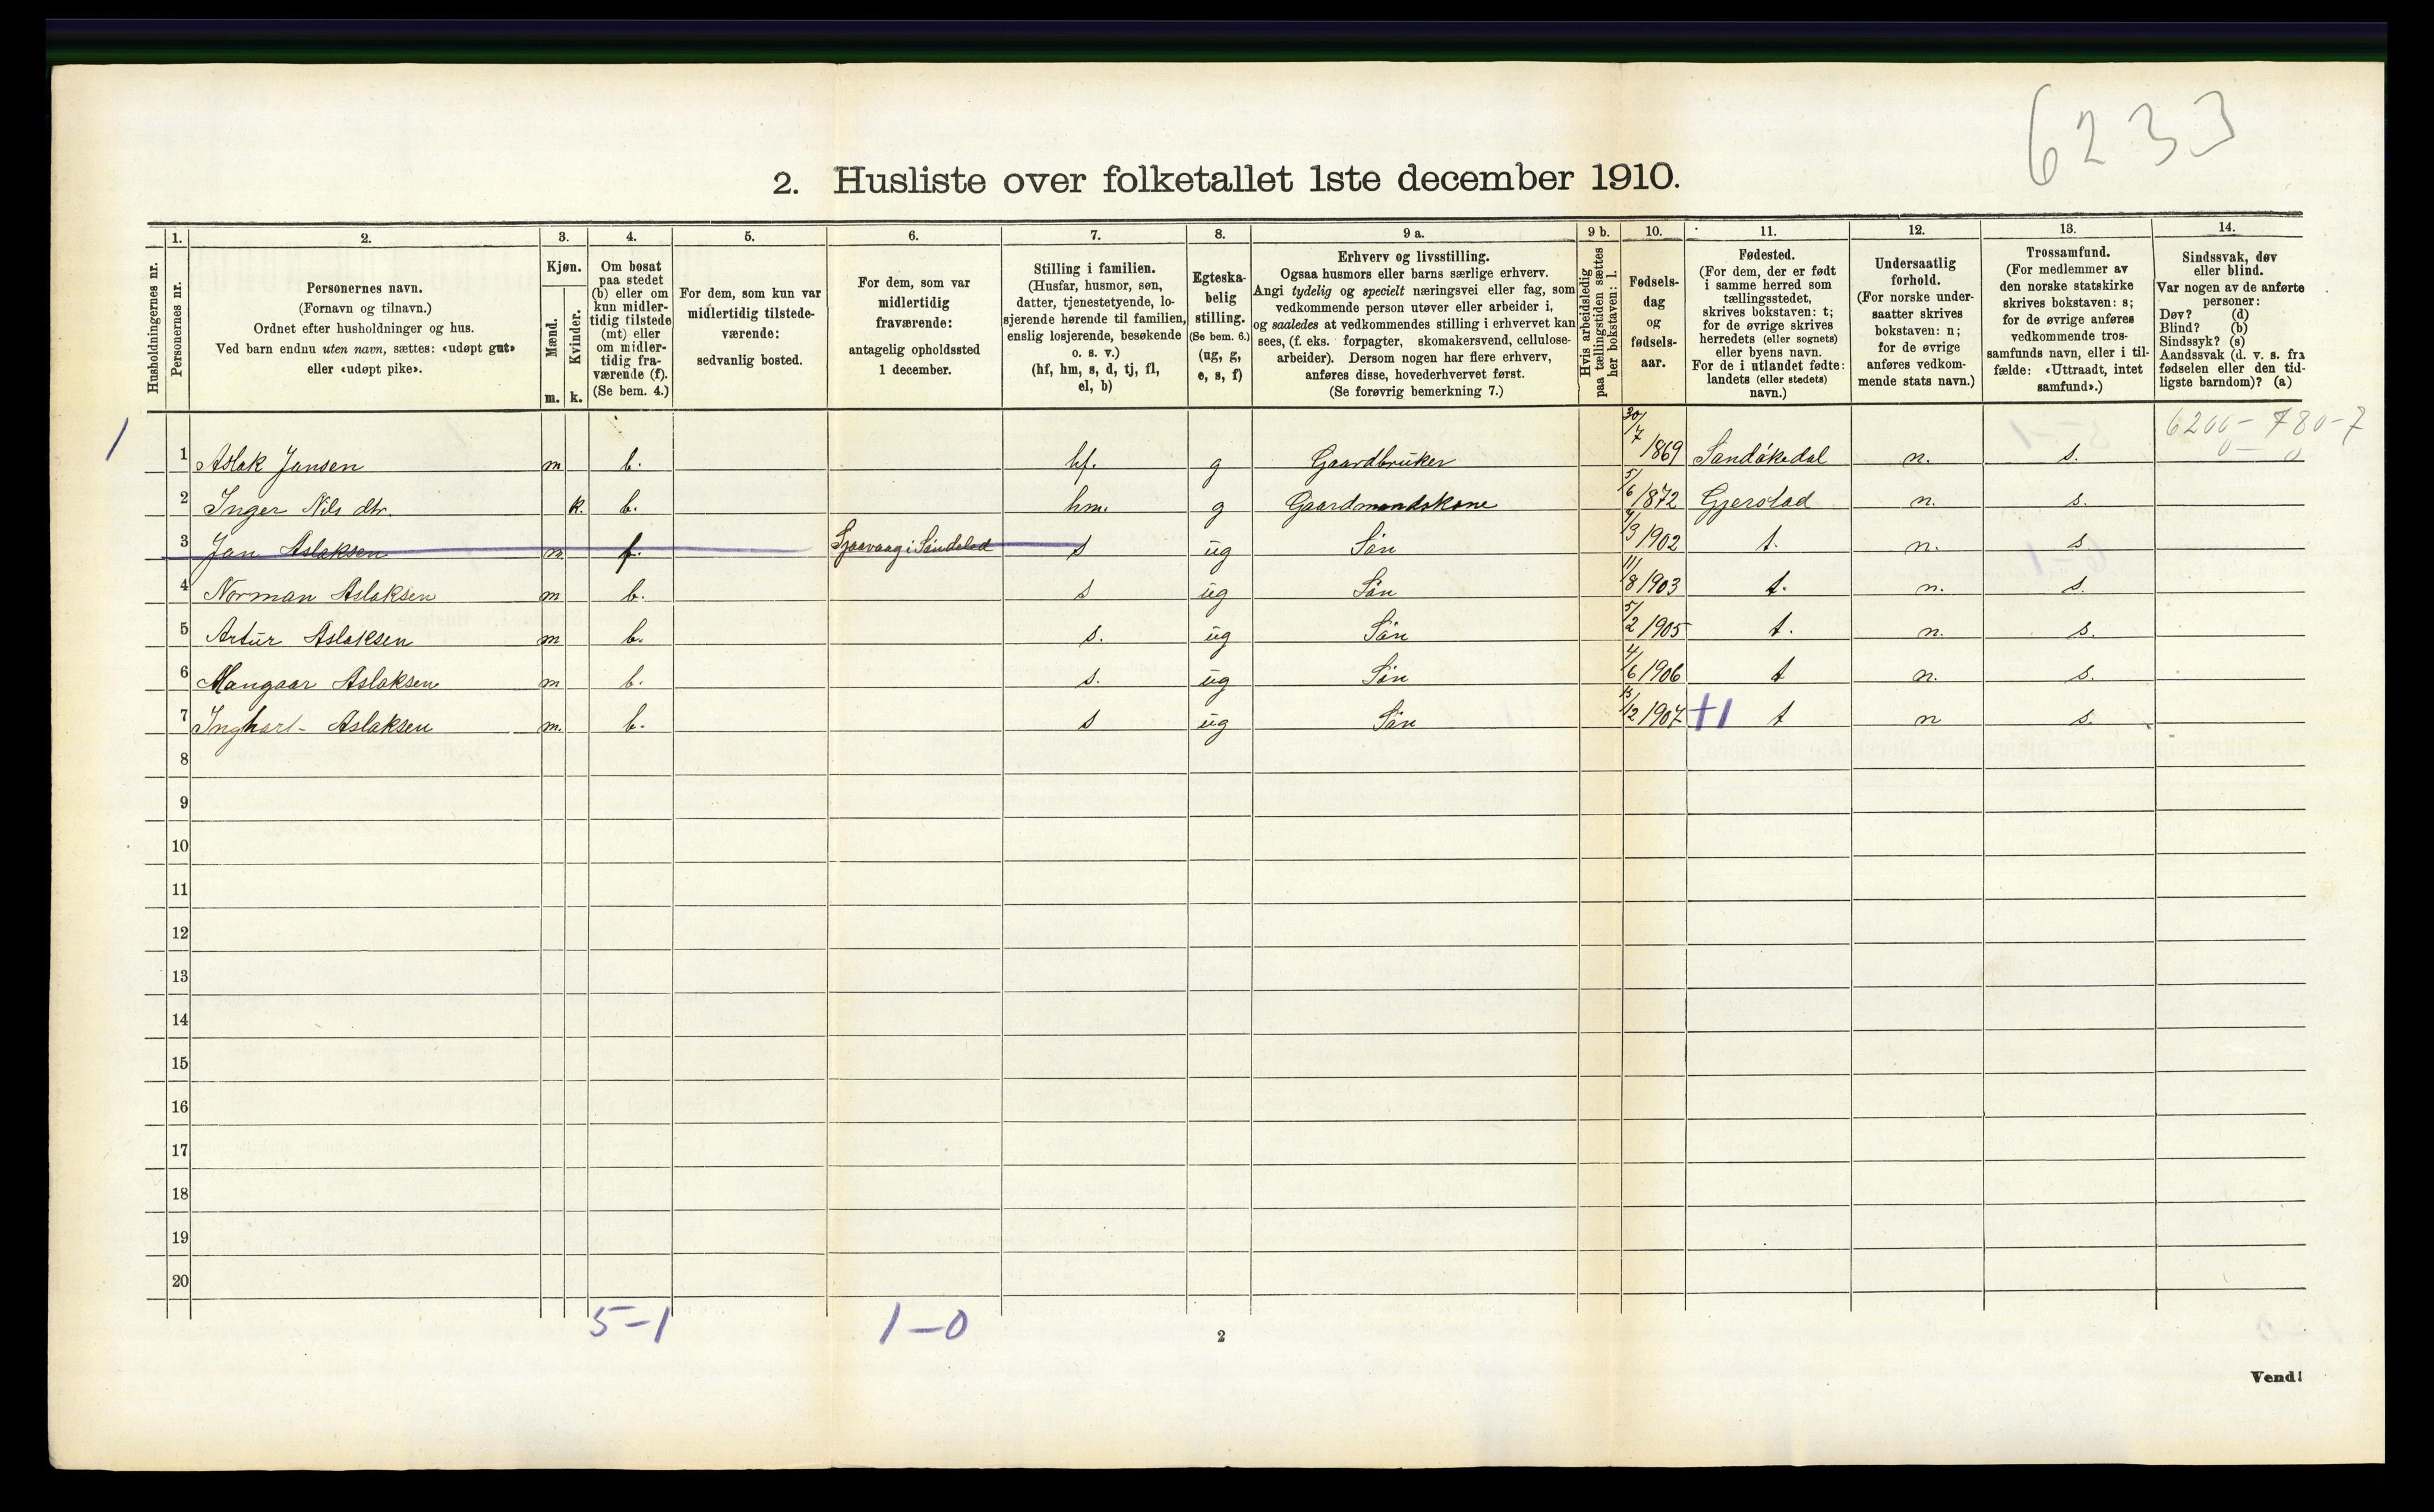 6233
2. Husliste over folketallet 1ste december 1910.
Husholdningernes nr.
1. Personernes nr.
2. Personernes navn. (Fornavn og tilnavn.) Ordnet efter husholdninger og hus. Ved barn endnu uten navn, sættes: «udøpt gut» eller «udøpt pike».
3. Kjøn. Mænd. m. Kvinder. k.
4. Om bosat paa stedet (b) eller om kun midlertidig tilstede (mt) eller om midlertidig fraværende (f). (Se bem. 4.)
5. For dem, som kun var midlertidig tilstedeværende: sedvanlig bosted.
6. For dem, som var midlertidig fraværende: antagelig opholdssted 1 december.
7. Stilling i familien. (Husfar, husmor, søn, datter, tjenestetyende, losjerende hørende til familien, enslig losjerende, besøkende o. s. v.) (hf, hm, s, d, tj, fl, el, b)
8. Egteskabelig stilling. (Se bem. 6.) (ug, g, e, s, f)
9 a. Erhverv og livsstilling. Ogsaa husmors eller barns særlige erhverv. Angi tydelig og specielt næringsvei eller fag, som vedkommende person utøver eller arbeider i, og saaledes at vedkommendes stilling i erhvervet kan sees, (f. eks. forpagter, skomakersvend, cellulose-arbeider). Dersom nogen har flere erhverv, anføres disse, hovederhvervet først. (Se forøvrig bemerkning 7.)
9 b. Hvis arbeidsledig paa tællingstiden sættes her bokstaven: l.
10. Fødselsdag og fødselsaar.
11. Fødested. (For dem, der er født i samme herred som tællingsstedet, skrives bokstaven: t; for de øvrige skrives herredets (eller sognets) eller byens navn. For de i utlandet fødte: landets (eller stedets) navn.)
12. Undersaatlig forhold. (For norske undersaatter skrives bokstaven: n; for de øvrige anføres vedkommende stats navn.)
13. Trossamfund. (For medlemmer av den norske statskirke skrives bokstaven: s; for de øvrige anføres vedkommende trossamfunds navn, eller i tilfælde: «Uttraadt, intet samfund».)
14. Sindssvak, døv eller blind. Var nogen av de anførte personer: Døv? (d) Blind? (b) Sindssyk? (s) Aandssvak (d. v. s. fra fødselen eller den tidligste barndom)? (a)
6200 - 780-7
0 - 0
1 1 Aslak Jansen m b. hf. g Gaardbruker 30/7 1869 Sandökedal n. s.
2 Inger Nils dtr. k. b. hm. g Gaardmandskone 5/6 1872 Gjerstad n. s.
3 Jan Aslaksen m. f. i Söndeled s ug Sön 4/3 1902 t. n. s.
4 Norman Aslaksen m b. s ug Sön 11/8 1903 t. n. s.
5 Artur Aslaksen m b. s. ug Sön 5/2 1905 t. n. s.
6 Mangaar Aslaksen m b. s. ug Sön 4/6 1906 t n. s.
7 Inghart Aslaksen m. b. s ug Sön 13/12 1907 +1 t n s.
8
9
10
11
12
13
14
15
16
17
18
19
20
5-1 1-0
2
Vend!